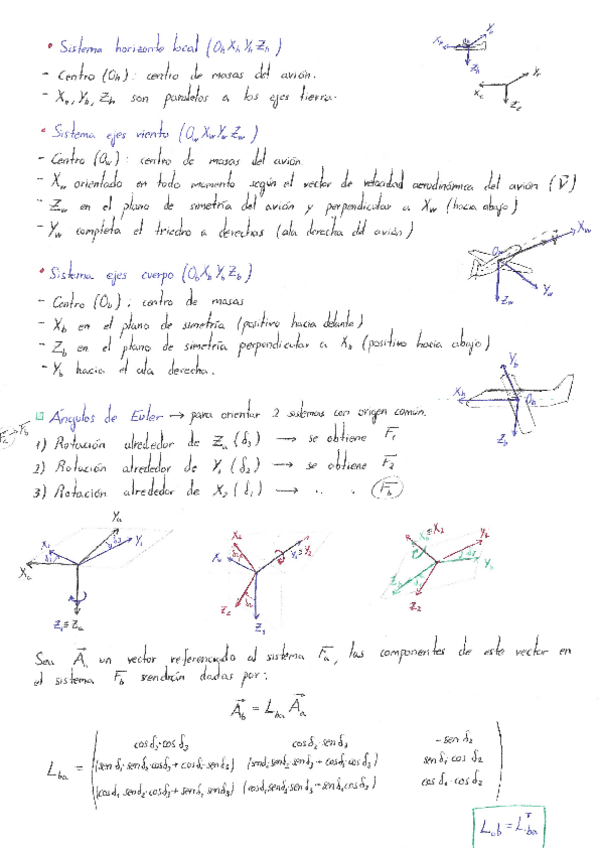 • Sistema horizonte local (OhXhYhZh)
- Centro (Oh): centro de masas del avión.
- Xh, Yh, Zh son paralelos a los ejes tierra.
• Sistema ejes viento (OwXwYwZw)
- Centro (Ow): centro de masas del avión
- Xw orientado en todo momento según el vector de velocidad aerodinámica del avión (V⃗)
- Zw en el plano de simetría del avión y perpendicular a Xw (hacia abajo)
- Yw completa el triedro a derechas (ala derecha del avión)
• Sistema ejes cuerpo (ObXbYbZb)
- Centro (Ob): centro de masas
- Xb en el plano de simetría (positivo hacia delante)
- Zb en el plano de simetría perpendicular a Xb (positivo hacia abajo)
- Yb hacia el ala derecha.
Fa → Fb
□ Ángulos de Euler → para orientar 2 sistemas con origen común.
1) Rotación alrededor de Za (δ3) → se obtiene F1
2) Rotación alrededor de Y1 (δ2) → se obtiene F2
3) Rotación alrededor de X2 (δ1) → . . Fb
Sea A⃗ un vector referenciado al sistema Fa, las componentes de este vector en
el sistema Fb vendrán dadas por:
A⃗b = Lba A⃗a
Lba =
cosδ2·cosδ3 cosδ2·senδ3 -senδ2
senδ1 cosδ2
cosδ1·cosδ2
Lab = Lba^T